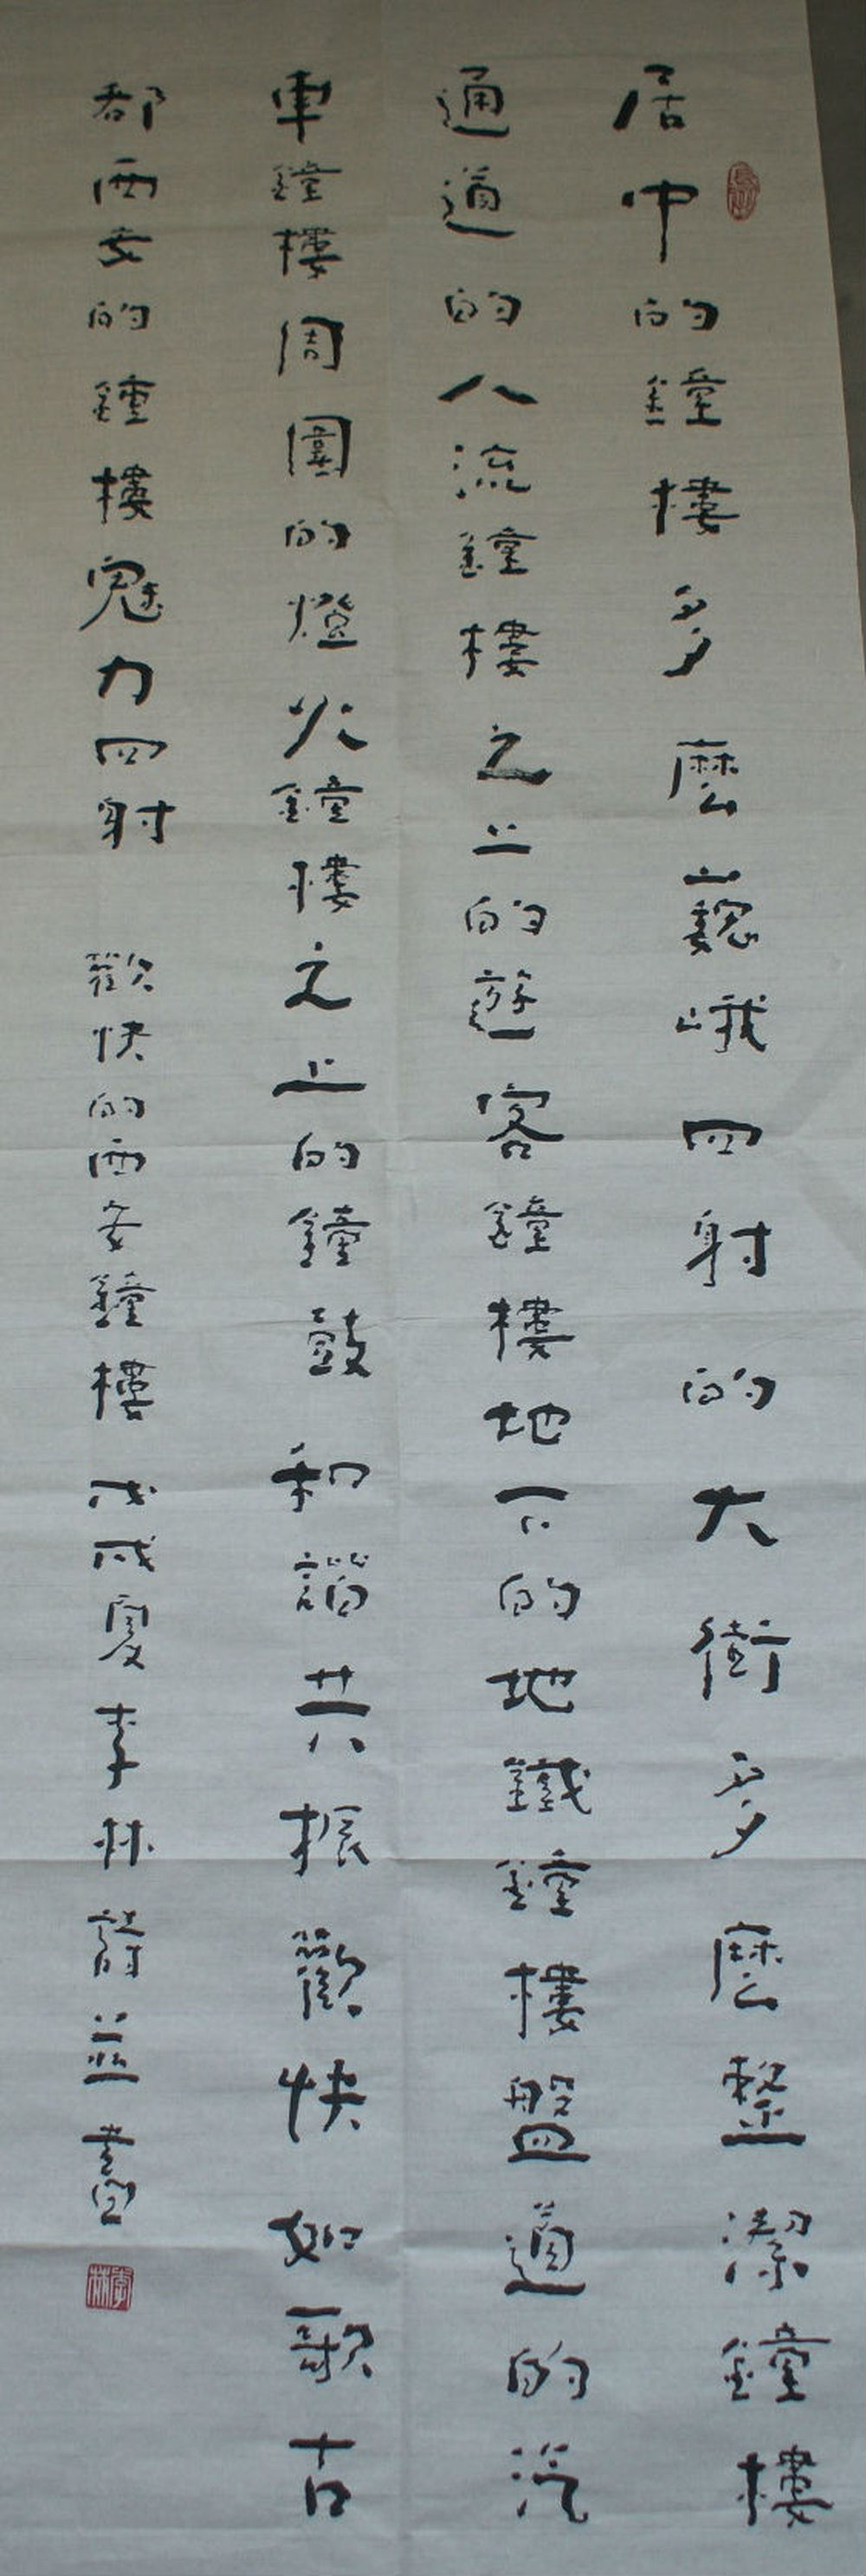 居中的鐘樓多麼巍峨四射的大街多麼整潔鐘樓
通道的人流鐘樓之上的遊客鐘樓地下的地鐵鐘樓盤道的汽
車鐘樓周圍的燈火鐘樓之上的鐘鼓和諧共振歡快如歌古
都西安的鐘樓魅力四射 歡快的西安鐘樓 戊戌夏李林詩並書
李林